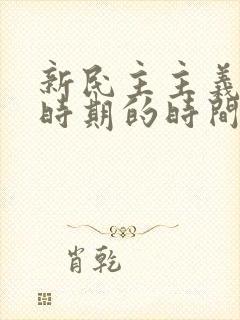 新民主主義
時期的時間
肖乾